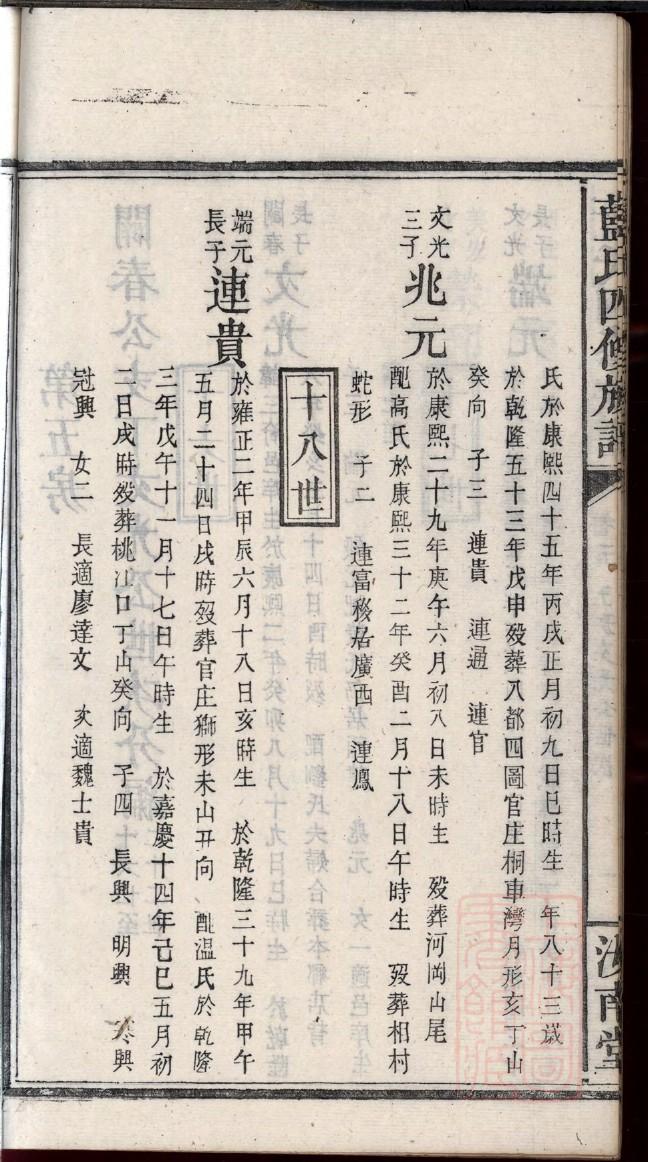 藍氏四修族譜
汝南堂
氏於康熙四十五年丙戌正月初九日巳時生 年八十三歲
於乾隆五十三年戊申歿葬八都四圖官庄桐車灣月形亥丁山
癸向 子三 連貴 連通 連官
文光
三子
兆元
於康熙二十九年庚午六月初八日未時生 歿葬河岡山尾
配高氏於康熙三十二年癸酉二月十八日午時生 歿葬相村
蛇形 子二 連富移居廣西 連鳳
十八世
端元
長子
連貴
於雍正二年甲辰六月十八日亥時生 於乾隆三十九年甲午
五月二十四日戌時歿葬官庄獅形未山丑向 配溫氏於乾隆
三年戊午十一月十七日午時生 於嘉慶十四年己巳五月初
二日戌時歿葬桃江口丁山癸向 子四 長興 明興 興
冠興 女二 長適廖達文 次適魏士貴